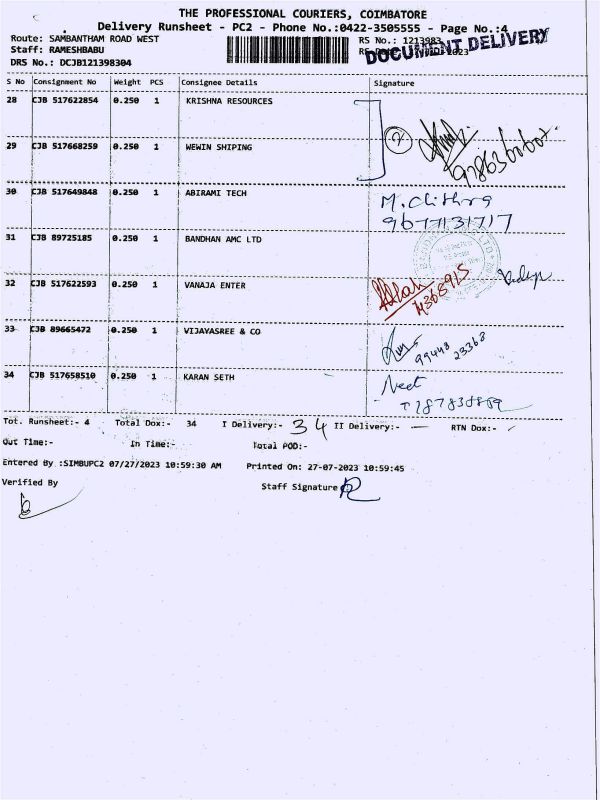 THE PROFESSIONAL COURIERS, COIMBATORE
Delivery Runsheet - PC2 - Phone No.:0422-3505555 - Page No.:4
Route: SAMBANTHAM ROAD WEST RS No.: 1213983
Staff: RAMESHBABU
DOCUMENT DELIVERY
DRS No.: DCJB121398304
S No Consignment No Weight PCS Consignee Details Signature
28 CJB 517622854 0.250 1 KRISHNA RESOURCES
2
29 CJB 517668259 0.250 1 WEWIN SHIPING
30 CJB 517649848 0.250 1 ABIRAMI TECH M. Chithra
9677131717
31 CJB 89725185 0.250 1 BANDHAN AMC LTD
32 CJB 517622593 0.250 1 VANAJA ENTER
33 CJB 89665472 0.250 1 VIJAYASREE & CO
99443 23368
34 CJB 517658510 0.250 1 KARAN SETH Neet
Tot. Runsheet:- 4 Total Dox:- 34 I Delivery:- 34 II Delivery:- — RTN Dox:-
Out Time:- In Time:- Total POD:-
Entered By :SIMBUPC2 07/27/2023 10:59:30 AM Printed On: 27-07-2023 10:59:45
Verified By Staff Signature